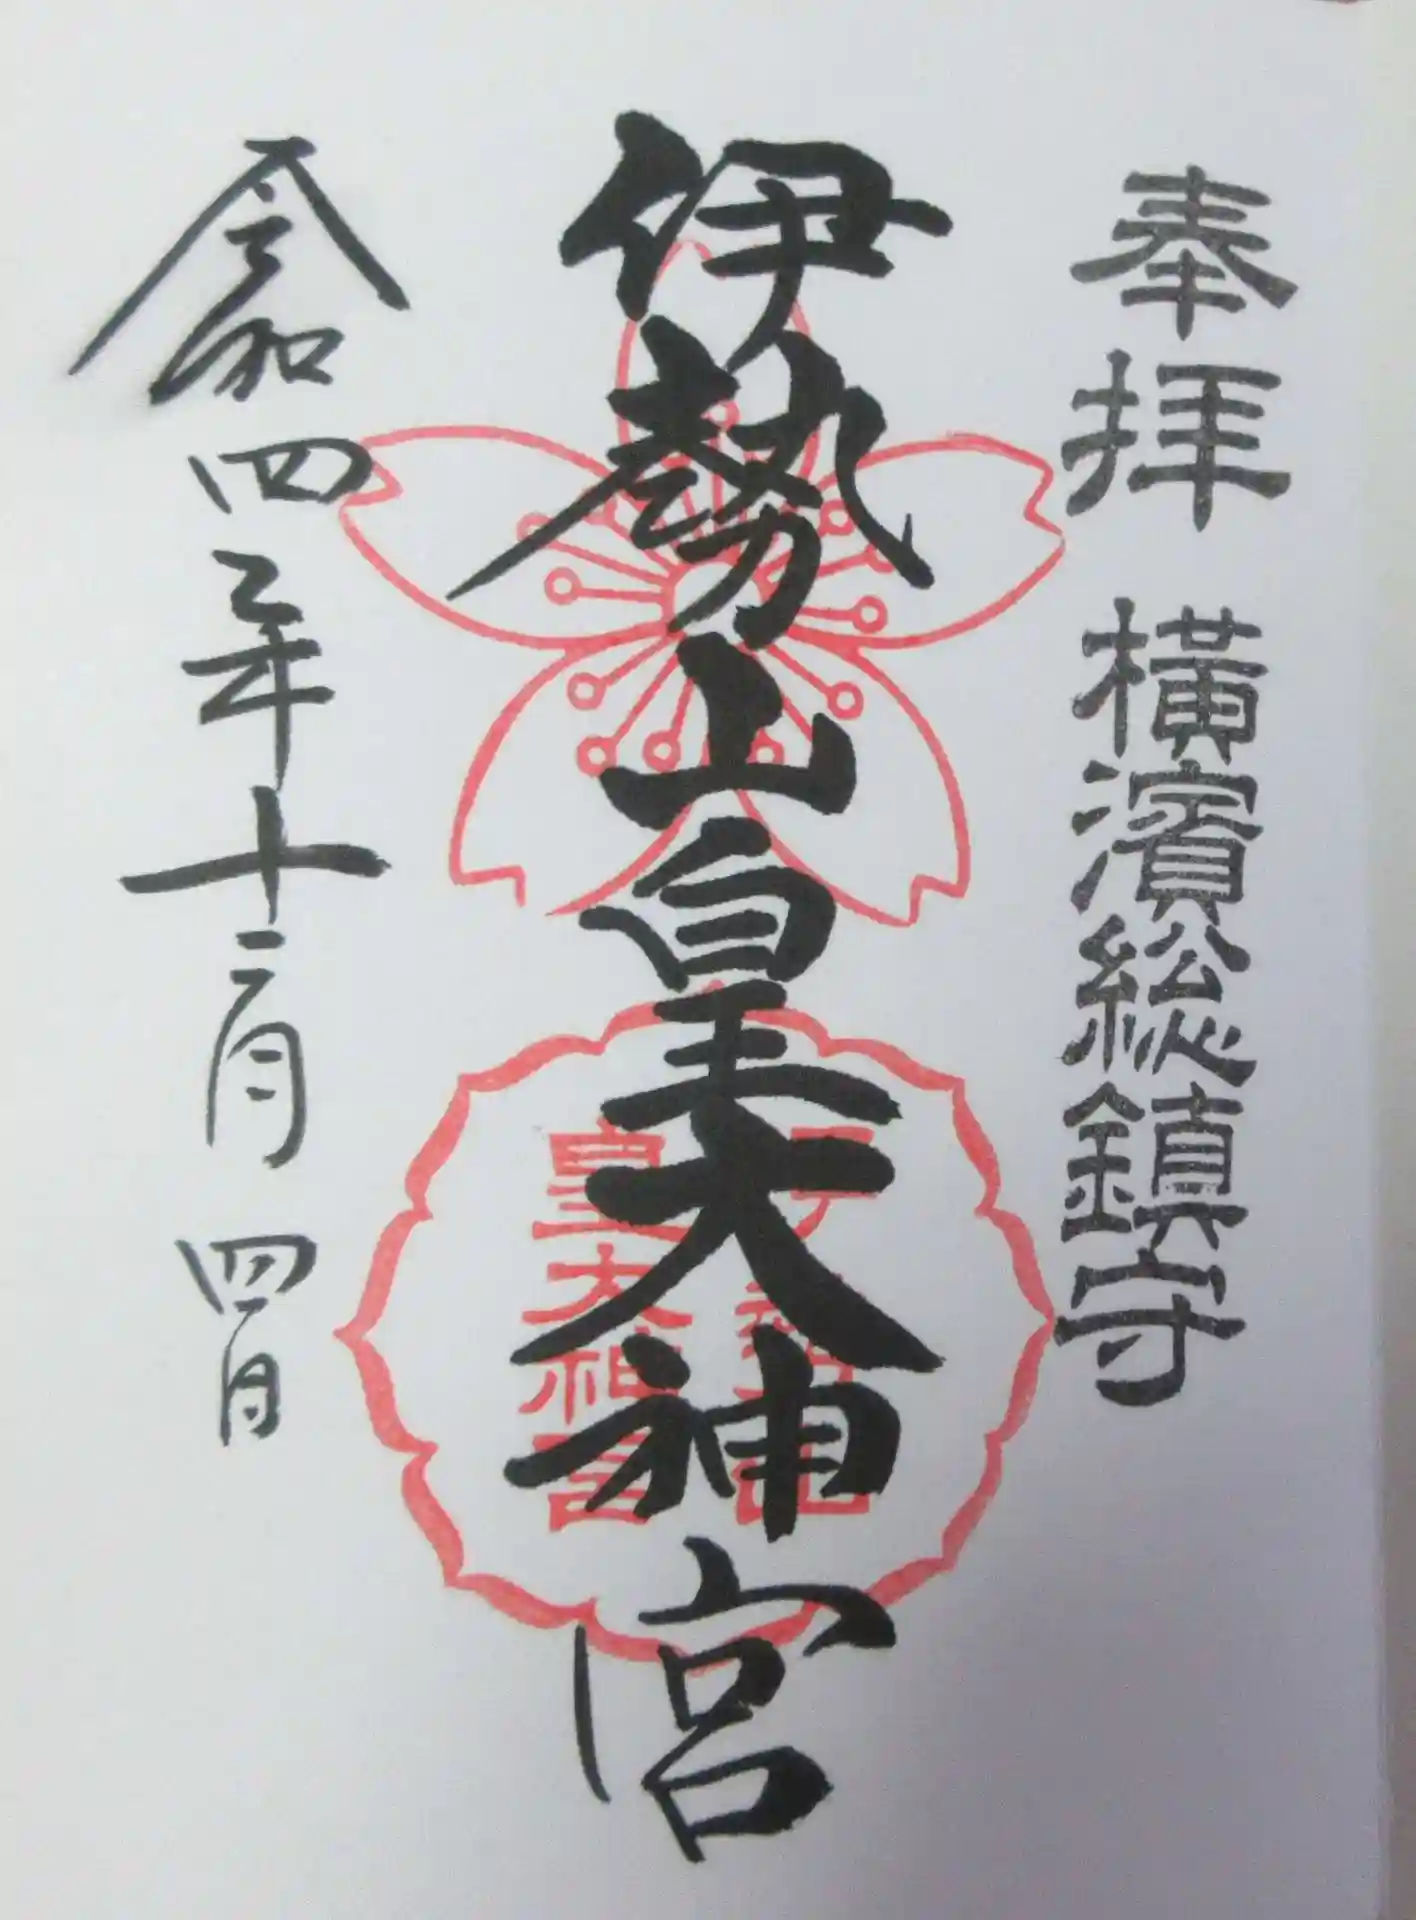 奉拝 橫濱総鎮守
伊勢山皇大神宮
皇大神宮
令和四年十二月四日